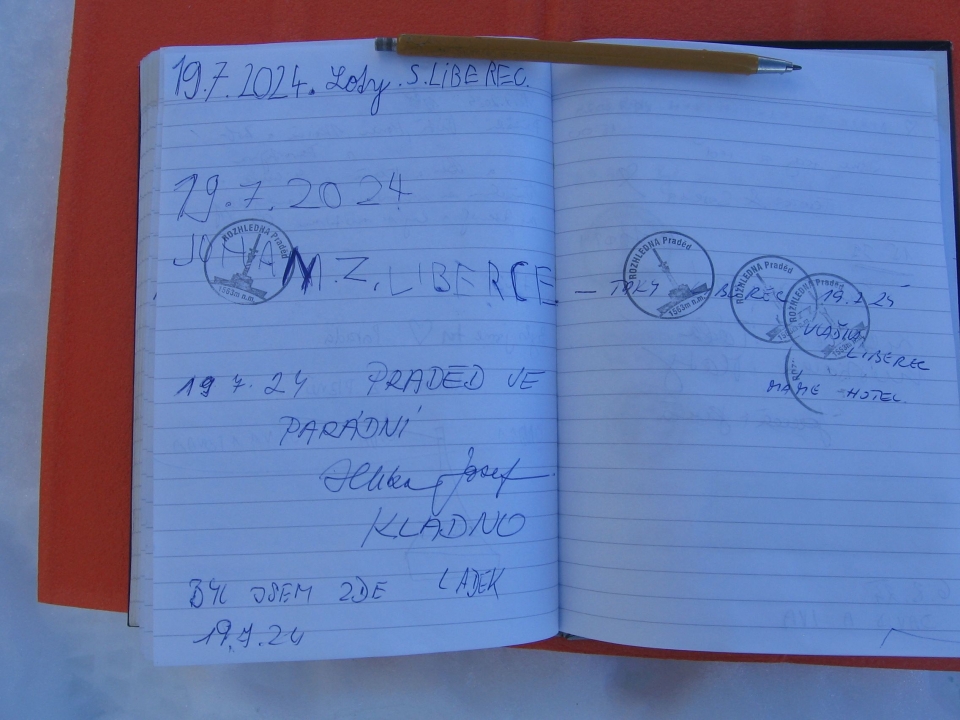 19.7.2024. S. LIBEREC.
19.7.2024
JOHAN. Z. LIBERCE
ROZHLEDNA Praděd
1563m n.m.
19 7. 24 PRADED JE
PARÁDNÍ
Josef
KLADNO
BYL JSEM ZDE LADEK
19.7.24
ROZHLEDNA Praděd
1563m n.m.
– TAKY LIBEREC 19.7.24
ROZHLEDNA Praděd
ROZHLEDNA Praděd
LIBEREC
MÁME HOTEL.